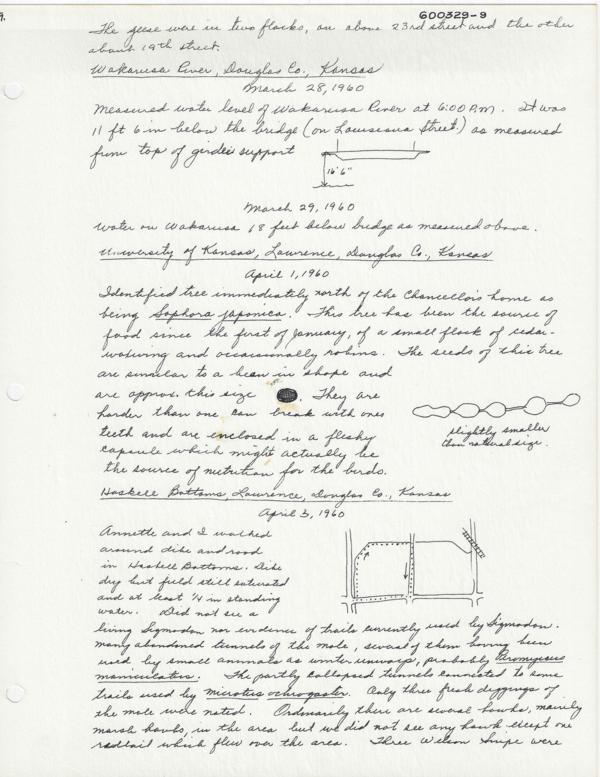 9.
600329-9
The geese were in two flocks, on above 23rd street and the other
about 19th street.
Wakarusa River, Douglas Co., Kansas
March 28, 1960
Measured water level of Wakarusa River at 6:00 P.M. It was
11 ft 6 in below the bridge (on Louisiana Street) as measured
from top of girder support
16' 6"
March 29, 1960
Water on Wakarusa 18 feet below bridge as measured above.
University of Kansas, Lawrence, Douglas Co., Kansas
April 1, 1960
Identified tree immediately north of the Chancellor's home as
being Sophora japonica. This tree has been the source of
food since the first of January, of a small flock of cedar-
waxwing and occasionally robins. The seeds of this tree
are similar to a bean in shape and
are approx. this size . They are
harder than one can break with ones
teeth and are enclosed in a fleshy
capsule which might actually be
the source of nutrition for the birds.
slightly smaller
than natural size.
Haskell Bottoms, Lawrence, Douglas Co., Kansas
April 3, 1960
Annette and I walked
around dike and road
in Haskell Bottoms. Dike
dry but field still saturated
and at least 1/4 in standing
water. Did not see a
living Sigmodon nor evidence of trails currently used by Sigmodon.
Many abandoned tunnels of the mole, several of them having been
used by small animals as winter runways, probably Peromyscus
maniculatus. The partly collapsed tunnels connected to some
trails used by Microtus ochrogaster. Only three fresh diggings of
the mole were noted. Ordinarily there are several hawks, mainly
marsh hawks, in the area but we did not see any hawk except one
redtail which flew over the area. Three Wilson Snipe were